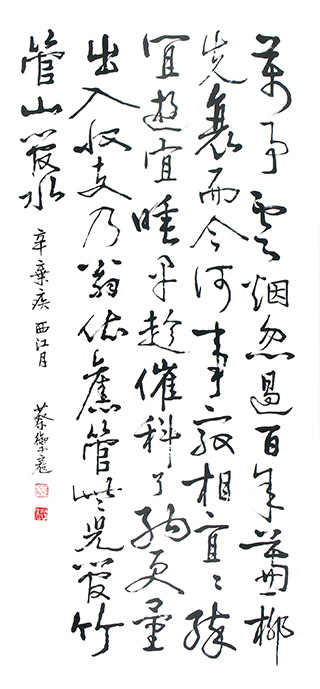 萬事雲烟忽過百年蒲柳
先衰而今何事最相宜〻醉
宜遊宜睡早趁催科了納更量
出入收支乃翁依舊管些兒管竹
管山管水
辛棄疾 西江月 蔡